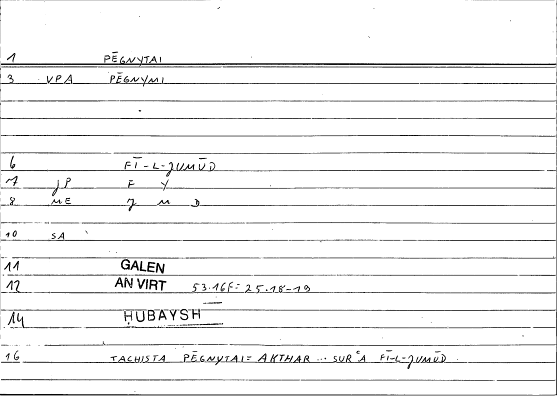 1 PĒGNYTAI
3 VPA PĒGNYMI
6 FĪ-L-JUMŪD
7 JP F Y
8 ME J M D
10 SA
11 GALEN
12 AN VIRT 53.16F = 25.18-19
14 ḤUBAYSH
16 TACHISTA PĒGNYTAI = AKTHAR ... SURʿA FĪ-L-JUMŪD